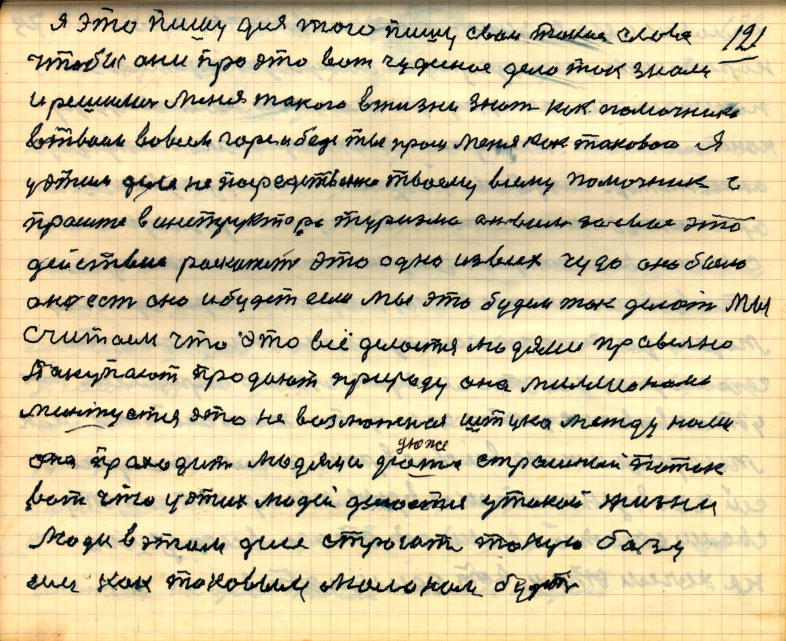 я это пишу для того пишу свои такие слова 121
чтобы они про это вот чудесное дело так знали
и решили меня такого в жизни знат как помочника
во всем горе и беде ты проси меня как такового Я
не посредственно твоему всему помочник с
инструктора туризма это
действие раскажет это одно из всех чудо оно было
оно ест оно и будет если мы это будем так делат мы
считаем что это всё делается людями правельно
Пакупают продают природу она миллионами
это не возможная штука между нами
дюже
она праходит людями страшный паток
вот что у этих людей делается у такой жизни
Люди в этом деле строят такую базу
им как таковым малоком будут